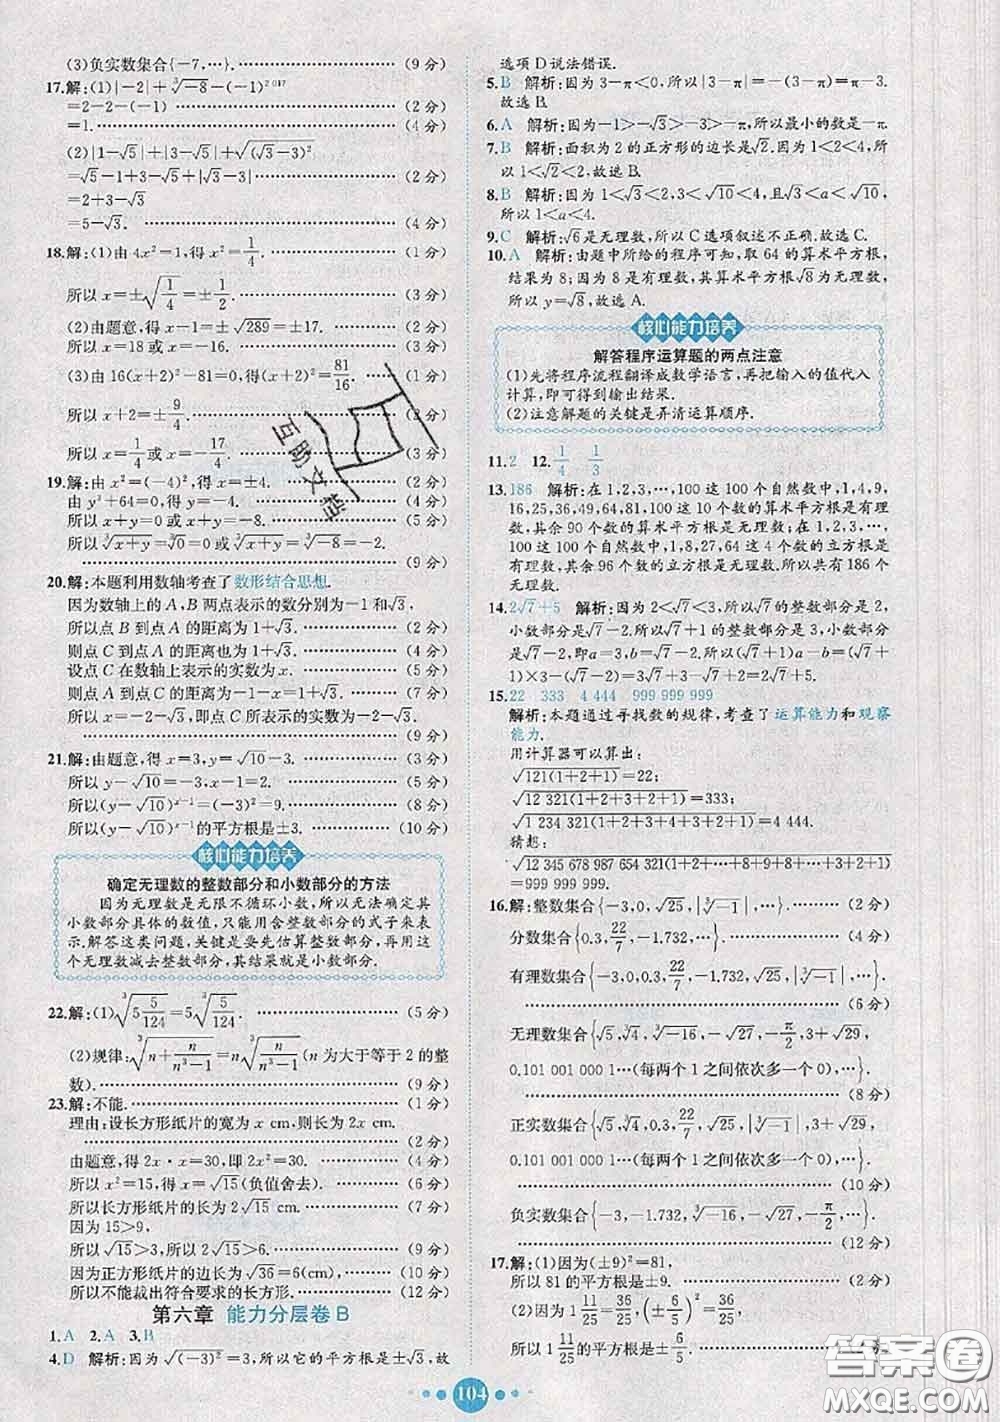 (3)负实数集合{-7,…}. (9分)
17.解:(1)|-2|+∛-8-(-1)²⁰¹⁷
=2-2-(-1) (2分)
=1. (4分)
(2)|1-√5|+|√5-√3|+√(√3-3)²
=√5-1+3-√5+|√3-3| (2分)
=2+3-√3
=5-√3. (4分)
18.解:(1)由4x²=1,得x²=1/4. (1分)
所以x=±√(1/4)=±1/2. (3分)
(2)由题意,得x-1=±√289=±17. (2分)
所以x=18或x=-16. (3分)
(3)由16(x+2)²=81,得(x+2)²=81/16. (1分)
所以x+2=±9/4. (2分)
所以x=1/4或x=-17/4. (3分)
19.解:由x²=(-4)²,得x=±4. (2分)
由y³+64=0,得y=-4. (4分)
所以x+y=0或x+y=-8. (5分)
所以∛(x+y)=∛0=0或∛(x+y)=∛-8=-2.
(9分)
20.解:本题利用数轴考查了数形结合思想.
因为数轴上的A,B两点表示的数分别为-1和√3,
所以点B到点A的距离为1+√3. (2分)
则点C到点A的距离也为1+√3. (4分)
设点C在数轴上表示的实数为x.
则点A到点C的距离为-1-x=1+√3. (7分)
所以x=-2-√3,即点C所表示的实数为-2-√3.
(9分)
21.解:由题意,得x=3,y=√10-3. (3分)
所以y-√10=-3,x-1=2. (5分)
所以(y-√10)ˣ⁻¹=(-3)²=9. (8分)
所以(y-√10)ˣ⁻¹的平方根是±3. (10分)
核心能力培养
确定无理数的整数部分和小数部分的方法
因为无理数是无限不循环小数,所以无法确定其
小数部分具体的数值,只能用含整数部分的式子来表
示.解答这类问题,关键是要先估算整数部分,再用这
个无理数减去整数部分,其结果就是小数部分.
22.解:(1)∛(5 5/124)=5∛(5/124). (5分)
(2)规律:∛(n+n/(n³-1))=n∛(n/(n³-1))(n为大于等于2的整
数). (9分)
23.解:不能. (1分)
理由:设长方形纸片的宽为x cm,则长为2x cm.
(2分)
由题意,得2x·x=30,即2x²=30. (4分)
所以x²=15,x=√15(负值舍去). (6分)
所以长方形纸片的长为2√15 cm.
因为15>9,
所以√15>3,所以2√15>6. (9分)
因为正方形纸片的边长为√36=6(cm), (10分)
所以不能裁出符合要求的长方形. (12分)
第六章 能力分层卷B
1.A 2.A 3.B
4.D 解析:因为√(-3)²=3,所以它的平方根是±√3.故
选项D说法错误.
5.B 解析:因为3-π<0,所以|3-π|=-(3-π)=π-3.
故选B.
6.A 解析:因为-1>-√3>-3>-π,所以最小的数是-π.
7.B 解析:面积为2的正方形的边长是√2.因为1<2<4,
所以1<√2<2,故选B.
8.B 解析:因为1<√3<2,3<√10<4,且√3<a<√10,
所以1<a<4.
9.C 解析:√6是无理数,所以C选项叙述不正确.故选C.
10.A 解析:由题中所给的程序可知,取64的算术平方根,
结果为8;因为8是有理数,其算术平方根√8为无理数,
所以y=√8,故选A.
核心能力培养
解答程序运算题的两点注意
(1)先将程序流程翻译成数学语言,再把输入的值代入
计算,即可得到输出结果.
(2)注意解题的关键是弄清运算顺序.
11.2 12.1/4 1/3
13.186 解析:在1,2,3,…,100这100个自然数中,1,4,9,
16,25,36,49,64,81,100这10个数的算术平方根是有理
数,其余90个数的算术平方根是无理数;在1,2,3,…,
100这100个自然数中,1,8,27,64这4个数的立方根是有
理数,其余96个数的立方根是无理数,所以共有186个
无理数.
14.2√7+5 解析:因为2<√7<3,所以√7的整数部分是2,
小数部分是√7-2,所以√7+1的整数部分是3,小数部
分是√7-2,即a=3,b=√7-2,所以(√7+1)a-b=(√7+
1)×3-(√7-2)=3√7+3-√7+2=2√7+5.
15.22 333 4 444 999 999 999
解析:本题通过寻找数的规律,考查了运算能力和观察
能力.
用计算器可以算出:
√121(1+2+1)=22;
√12 321(1+2+3+2+1)=333;
√1 234 321(1+2+3+4+3+2+1)=4 444.
猜想:
√12 345 678 987 654 321(1+2+…+8+9+8+…+2+1)
=999 999 999.
16.解:整数集合{-3,0,√25,|∛-1|,…}. (2分)
分数集合{0.3,22/7,-1.732,…}. (4分)
有理数集合{-3,0,0.3,22/7,-1.732,√25,|∛-1|,…}.
(6分)
无理数集合{√5,∛4,∛-16,-√27,-π/2,3+√29,
0.101 001 000 1…(每两个1之间依次多一个0),…}.
(8分)
正实数集合{√5,∛4,0.3,22/7,√25,|∛-1|,3+√29,
0.101 001 000 1…(每两个1之间依次多一个0),…}.
(10分)
负实数集合{-3,-1.732,∛-16,-√27,-π/2,…}.
(12分)
17.解:(1)因为(±9)²=81,
所以81的平方根是±9. (2分)
(2)因为1 11/25=36/25,(±6/5)²=36/25,
所以1 11/25的平方根是±6/5. (4分)
104
互助文档
答案圈
MXQE.COM